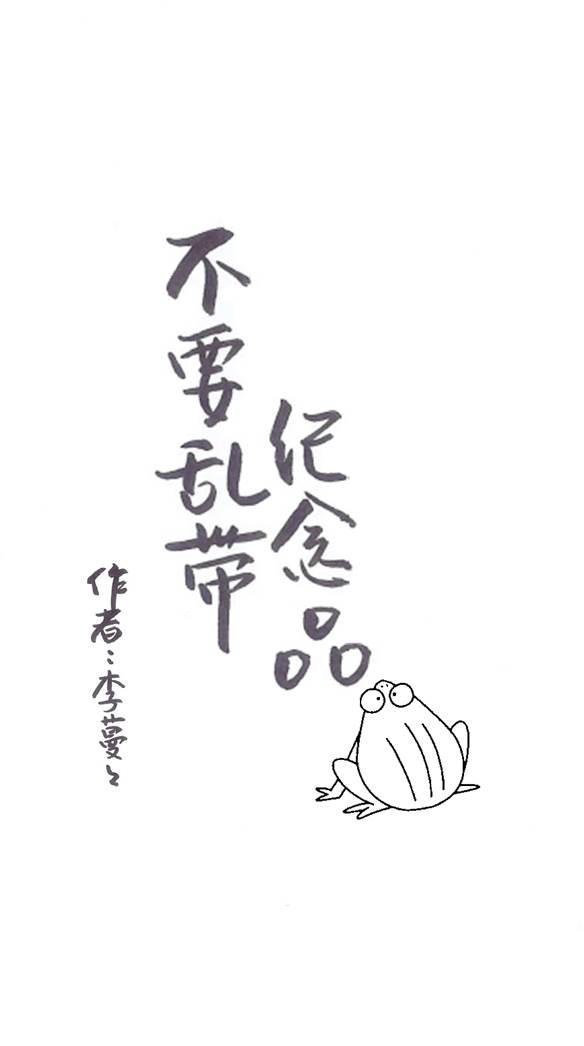 不要乱带
纪念品
作者:李蔓々